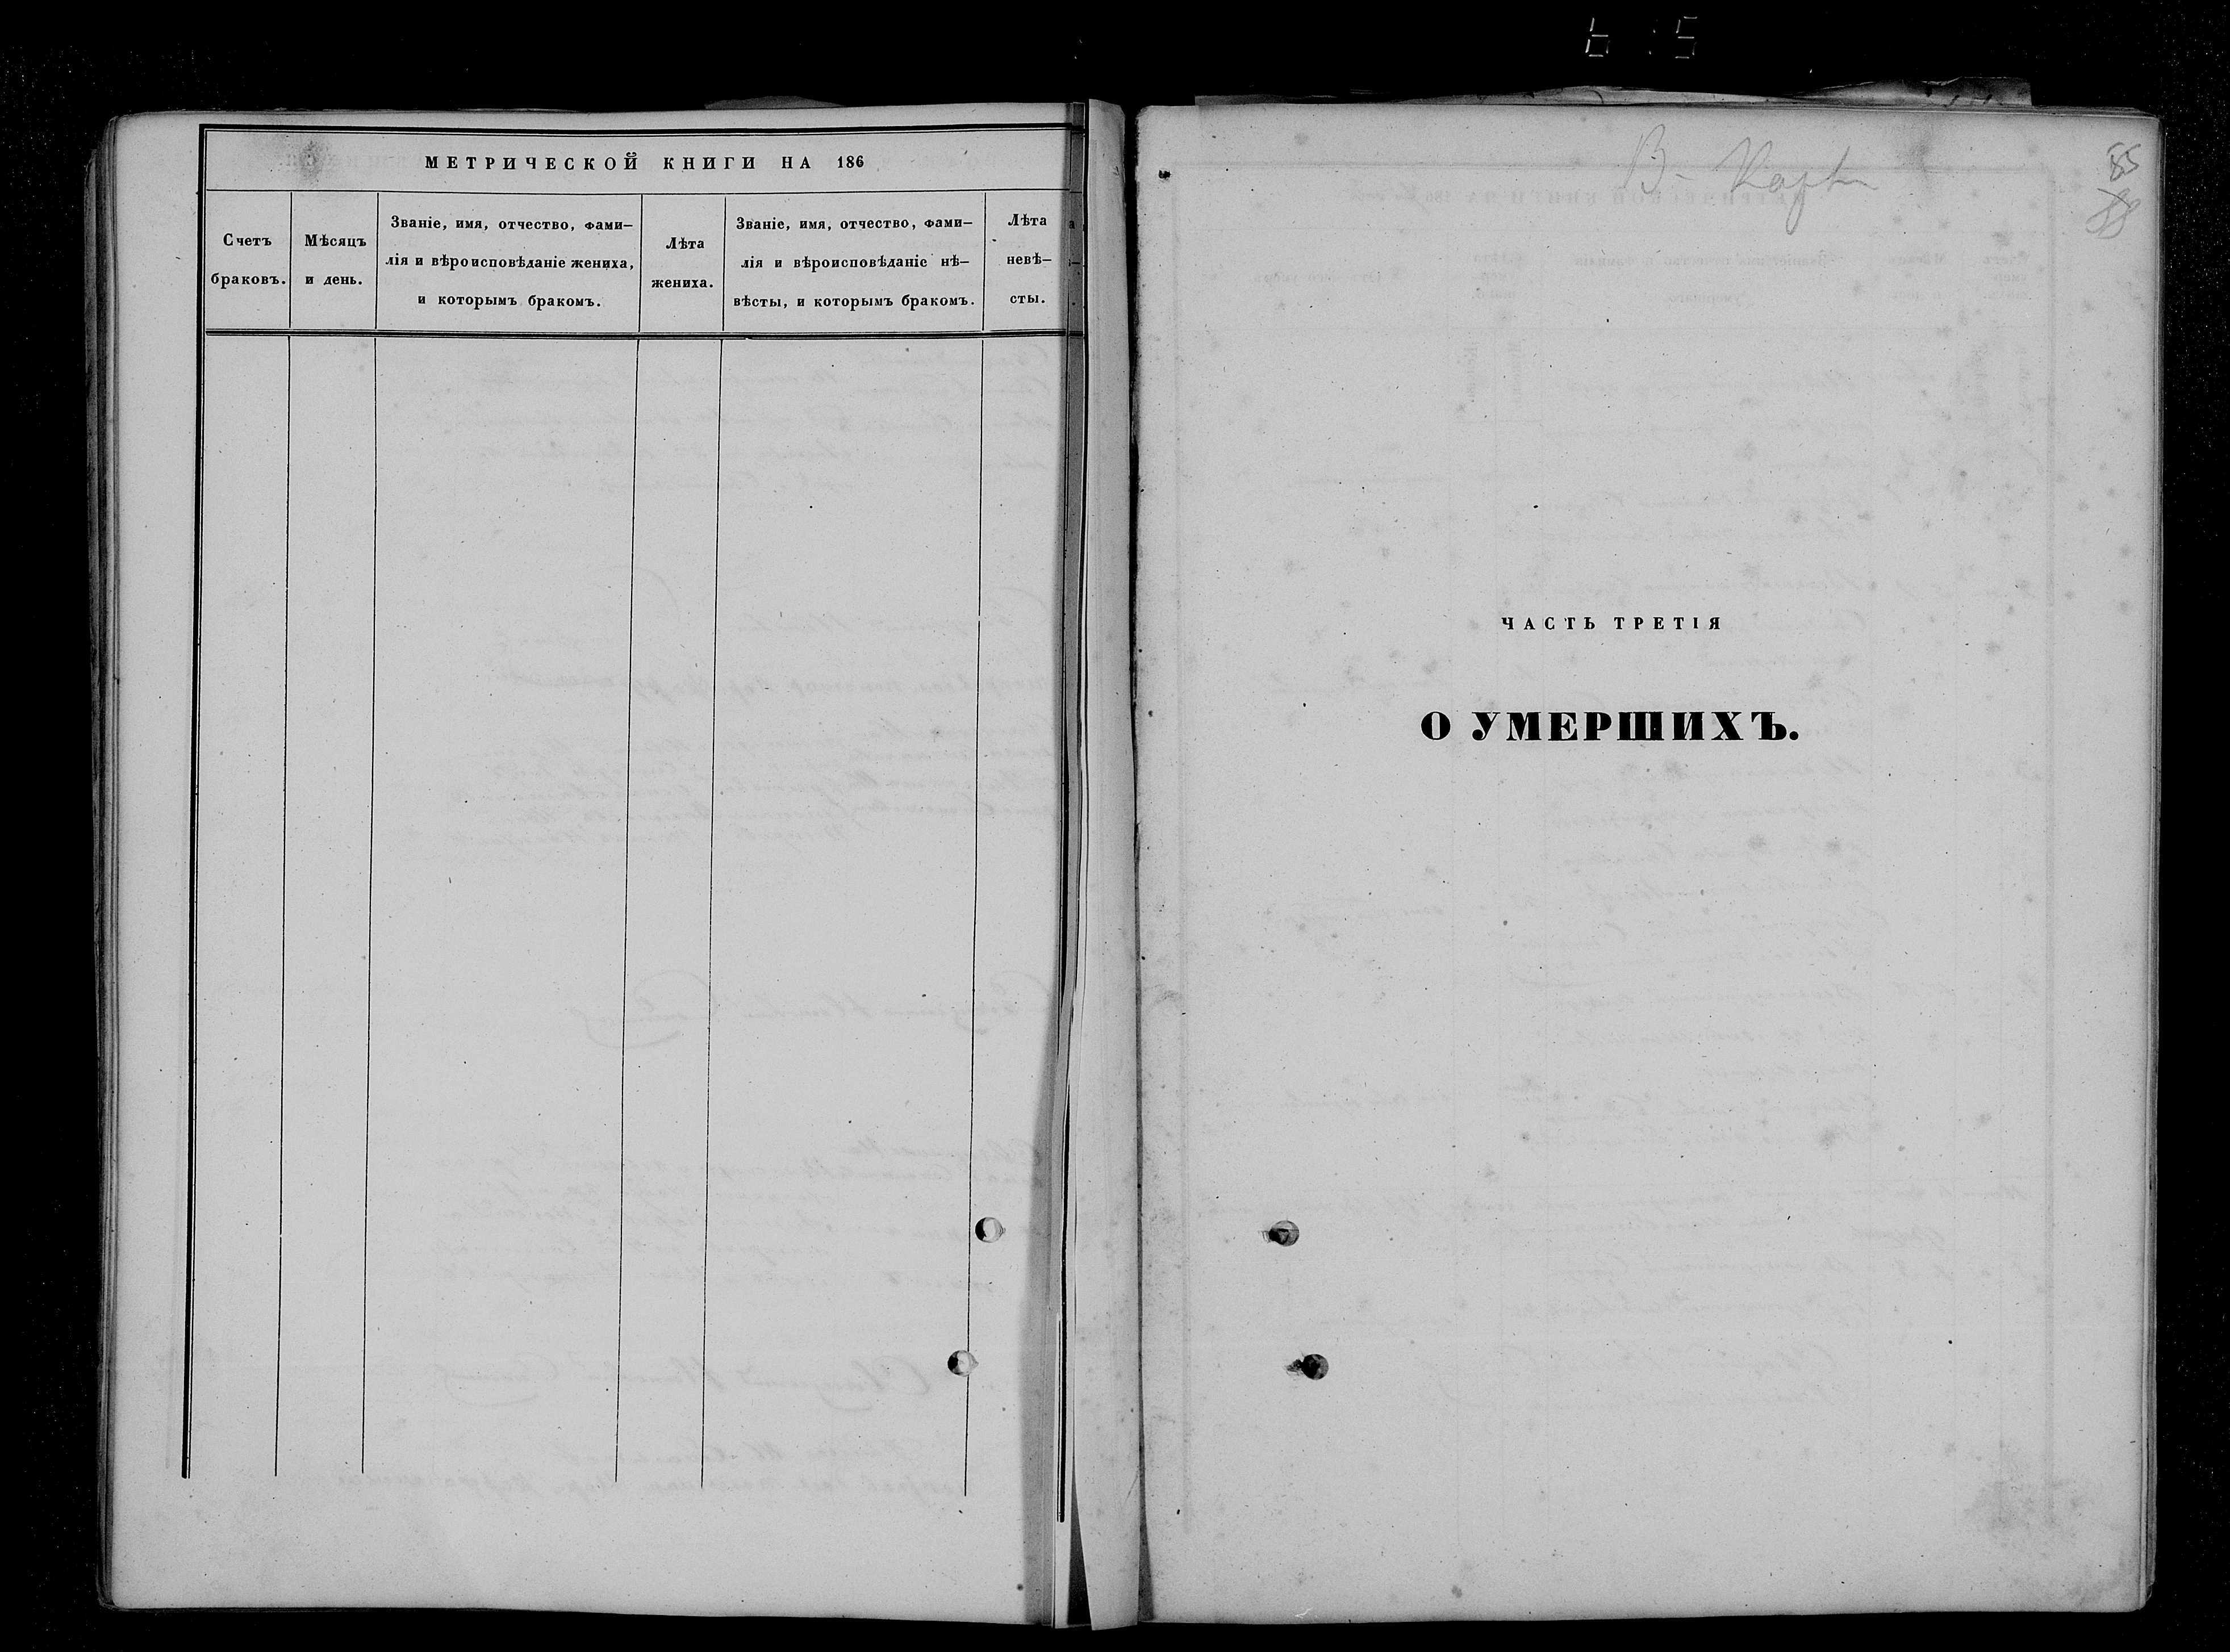 МЕТРИЧЕСКОЙ КНИГИ НА 186
Счетъ
браковъ.
Мѣсяцъ
и день.
Званіе, имя, отчество, фами—
лія и вѣроисповѣданіе жениха,
и которымъ бракомъ.
Лѣта
жениха.
Званіе, имя, отчество, фами—
лія и вѣроисповѣданіе нѣ—
вѣсты, и которымъ бракомъ.
Лѣта
невѣ—
сты.
85
ЧАСТЬ ТРЕТІЯ
О УМЕРШИХЪ.